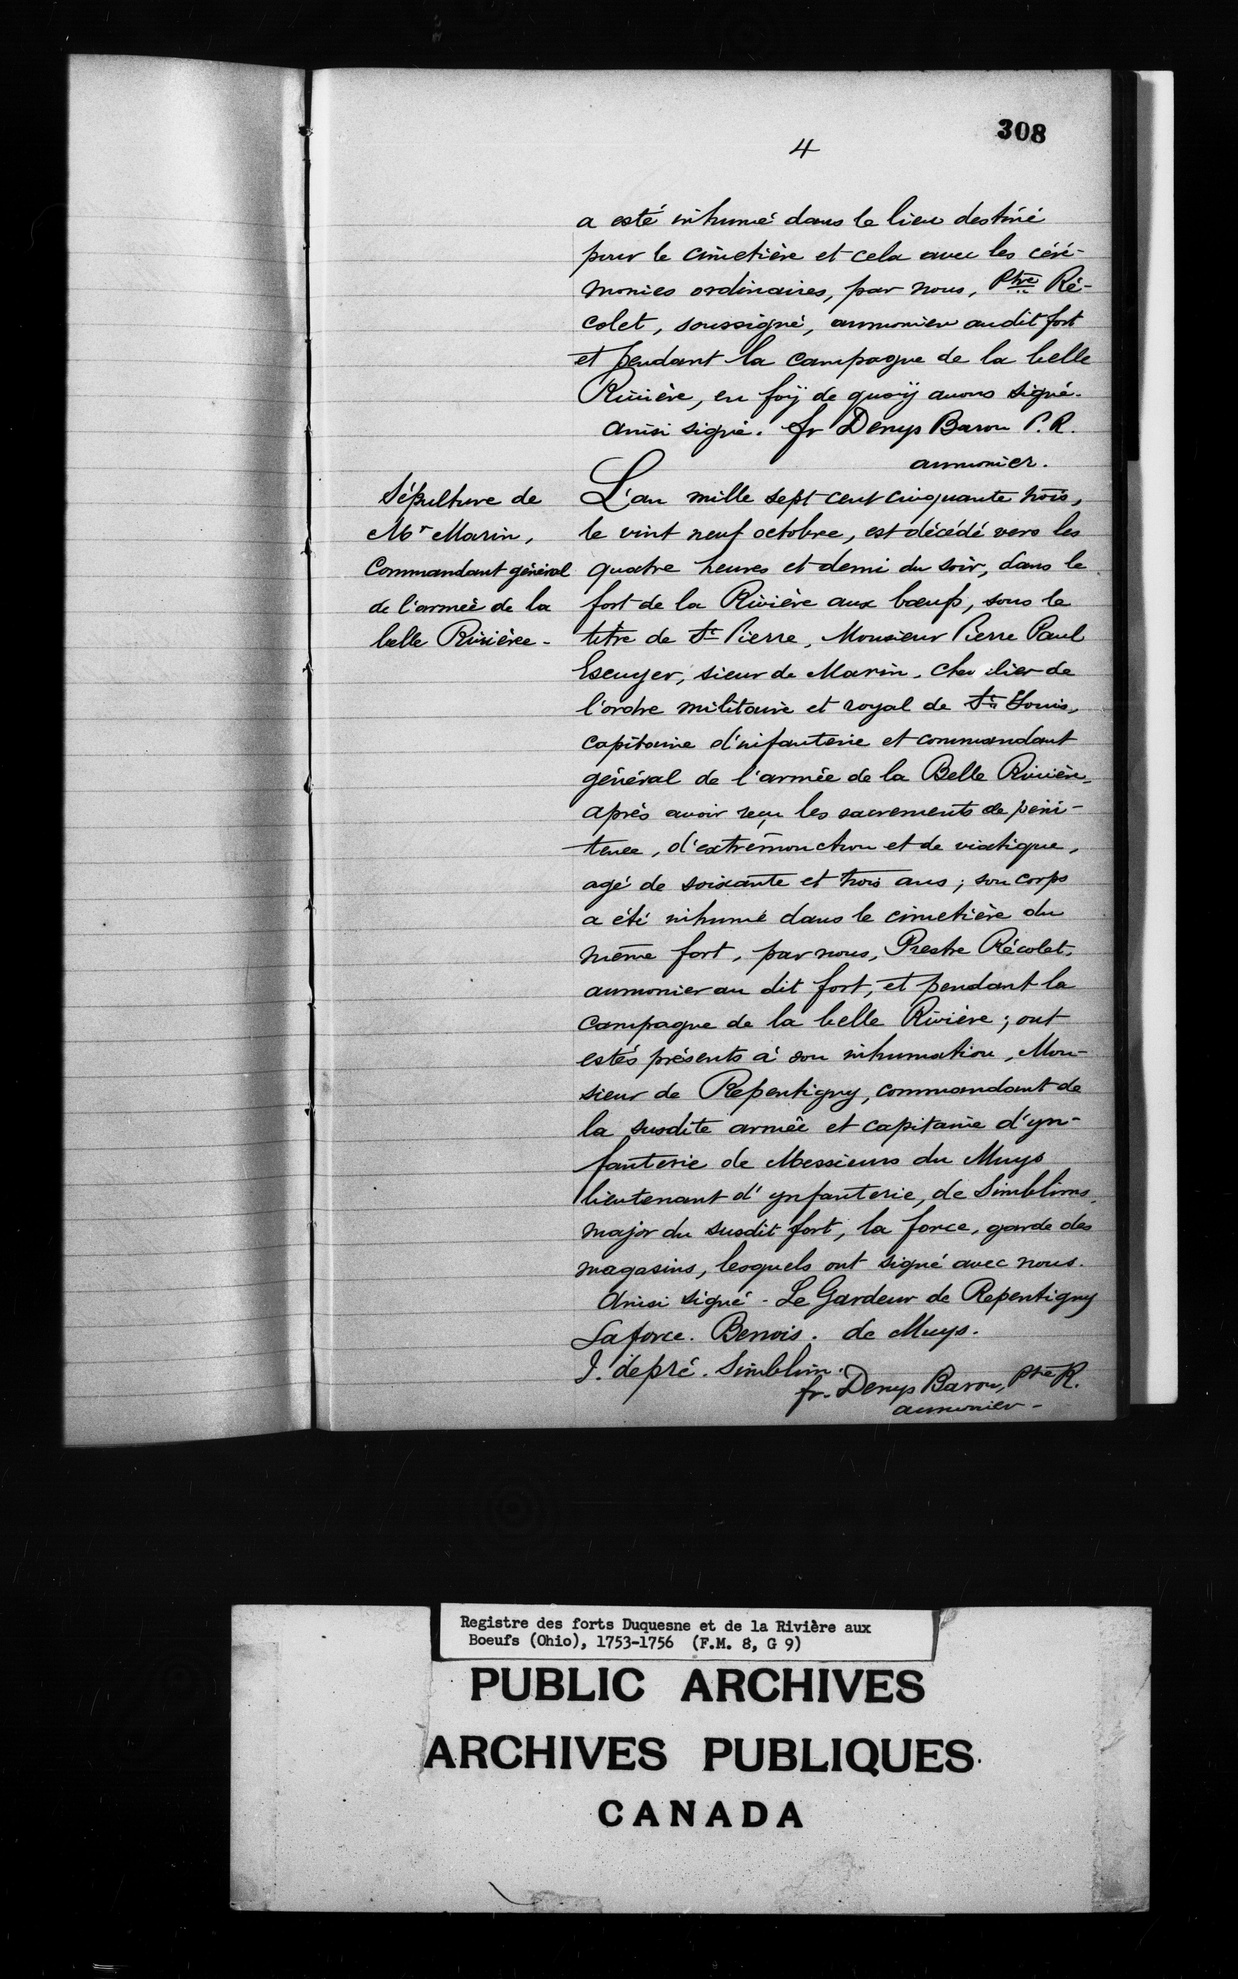 308
4
a esté inhumé dans le lieu destiné
pour le cimetière et cela avec les céré-
monies ordinaires, par nous, Ptre Ré-
colet, soussigné, aumonier audit fort
et pendant la campagne de la belle
Rivière, en foÿ de quoÿ avons signé.
Ainsi signé. fr Denys Baron P. R.
aumonier.
Sépulture de
Mr Marin,
Commandant général
de l'armée de la
belle Rivière -
L'an mille sept cent cinquante trois,
le vint neuf octobre, est décédé vers les
quatre heures et demi du soir, dans le
fort de la Rivière aux bœufs, sous le
titre de St Pierre, Monsieur Pierre Paul
Escuyer, sieur de Marin, Chevalier de
l'ordre militaire et royal de St Louis,
capitaine d'infanterie et commandant
général de l'armée de la Belle Rivière,
après avoir reçu les sacrements de péni-
tence, d'extrêmonction et de viatique,
agé de soixante et trois ans; son corps
a été inhumé dans le cimetière du
même fort, par nous, Prestre Récolet,
aumonier au dit fort, et pendant la
campagne de la belle Rivière; ont
estés présents à son inhumation, Mon-
sieur de Repentigny, commandant de
la susdite armée et capitaine d'yn-
fanterie de Messieurs du Muys
lieutenant d'ynfanterie, de Simblims,
major du susdit fort, la force, garde des
magasins, lesquels ont signé avec nous.
Ainsi signé - Le Gardeur de Repentigny
Laforce. Benois. de Muys.
J. depré. Simblim.
fr. Denys Baron, Ptre R.
aumonier -
Registre des forts Duquesne et de la Rivière aux
Boeufs (Ohio), 1753-1756 (F.M. 8, G 9)
PUBLIC ARCHIVES
ARCHIVES PUBLIQUES
CANADA